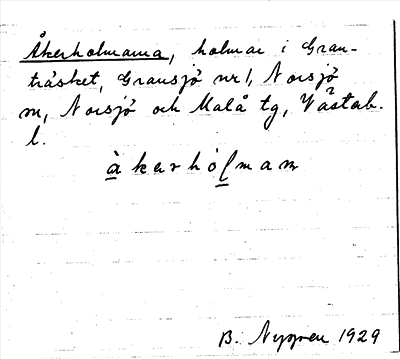 Åkerholmarna, holmar i Gran-
träsket, Gransjö nr 1, Norsjö
sn, Norsjö och Malå tg, Västerb.
l.
àkerhòlmam
B. Nyman 1929